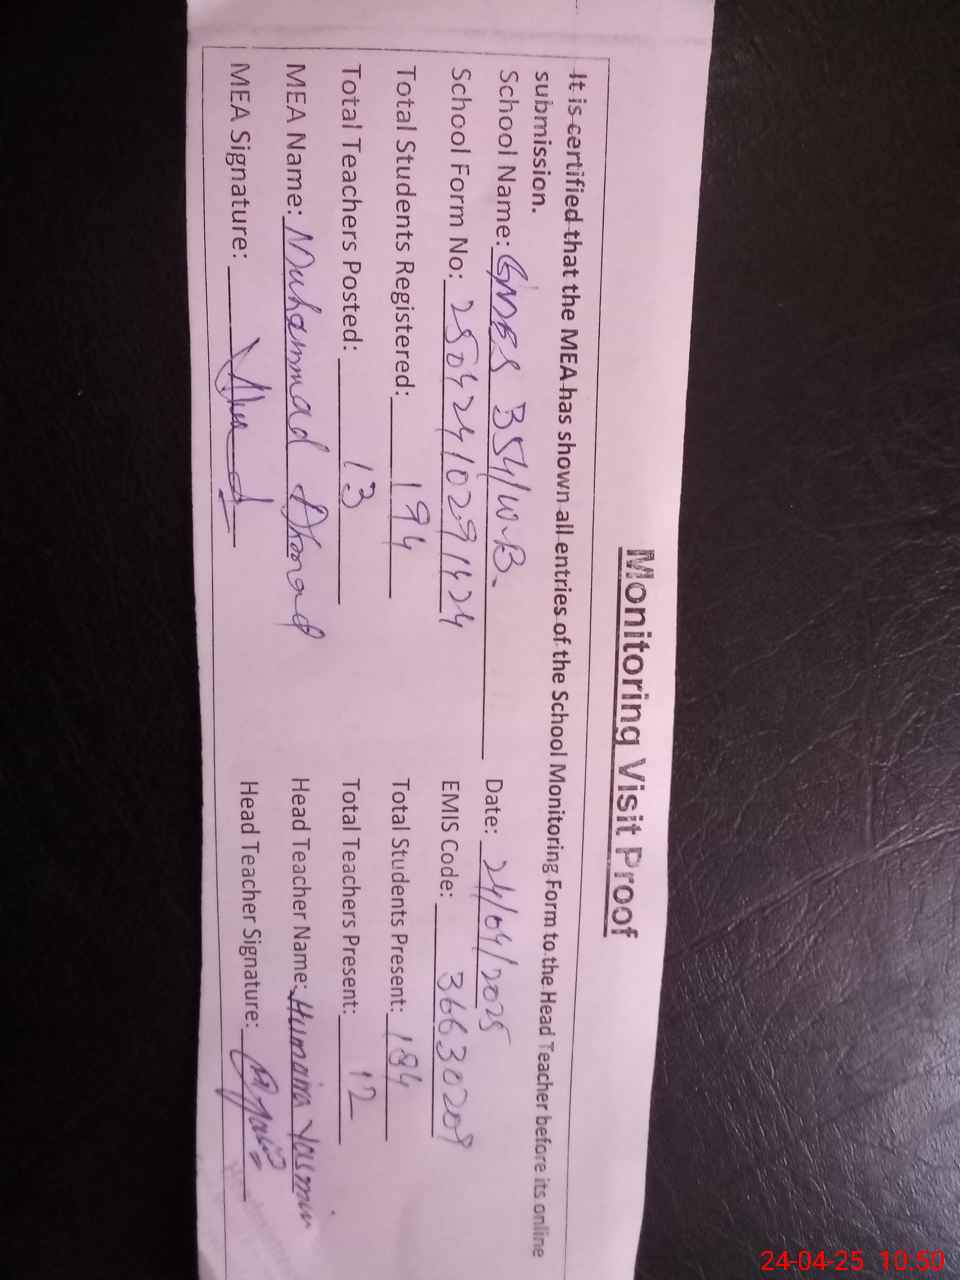 Monitoring Visit Proof
It is certified that the MEA has shown all entries of the School Monitoring Form to the Head Teacher before its online
submission.
School Name: GMES 354/W.B. Date: 24/04/2025
School Form No: 25042410291424 EMIS Code: 36630209
Total Students Registered: 194 Total Students Present: 184
Total Teachers Posted: 13 Total Teachers Present: 12
MEA Name: Muhammad Ahmad Head Teacher Name: Humaira Yasmin
MEA Signature: Head Teacher Signature:
24-04-25 10:50